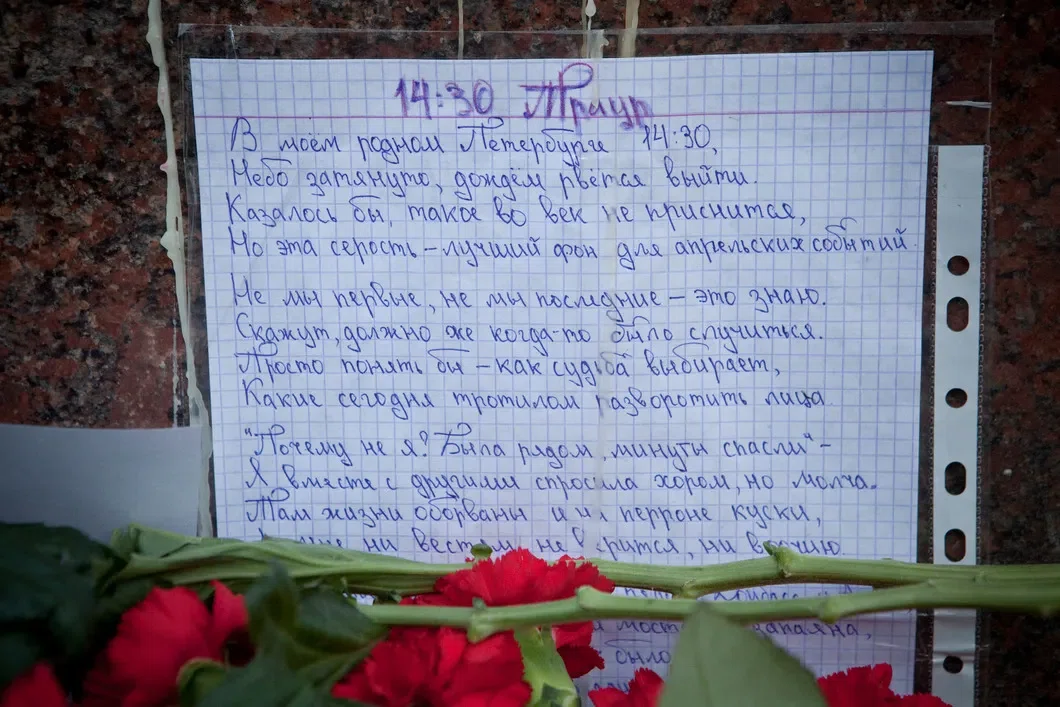 14:30 Траур
В моём родном Петербурге 14:30,
Небо затянуто, дождём рвётся выйти.
Казалось бы, такое во век не приснится,
Но эта серость – лучший фон для апрельских событий.
Не мы первые, не мы последние – это знаю.
Скажут, должно же когда-то было случиться.
Просто понять бы – как судьба выбирает,
Какие сегодня тротилом разворотить лица.
"Почему не я? Была рядом, минуты спасли" –
Я вместе с другими спросила хором, но молча.
Там жизни оборваны и на перроне куски,
ни вестям не верится, ни воочию.
запаяна,
было